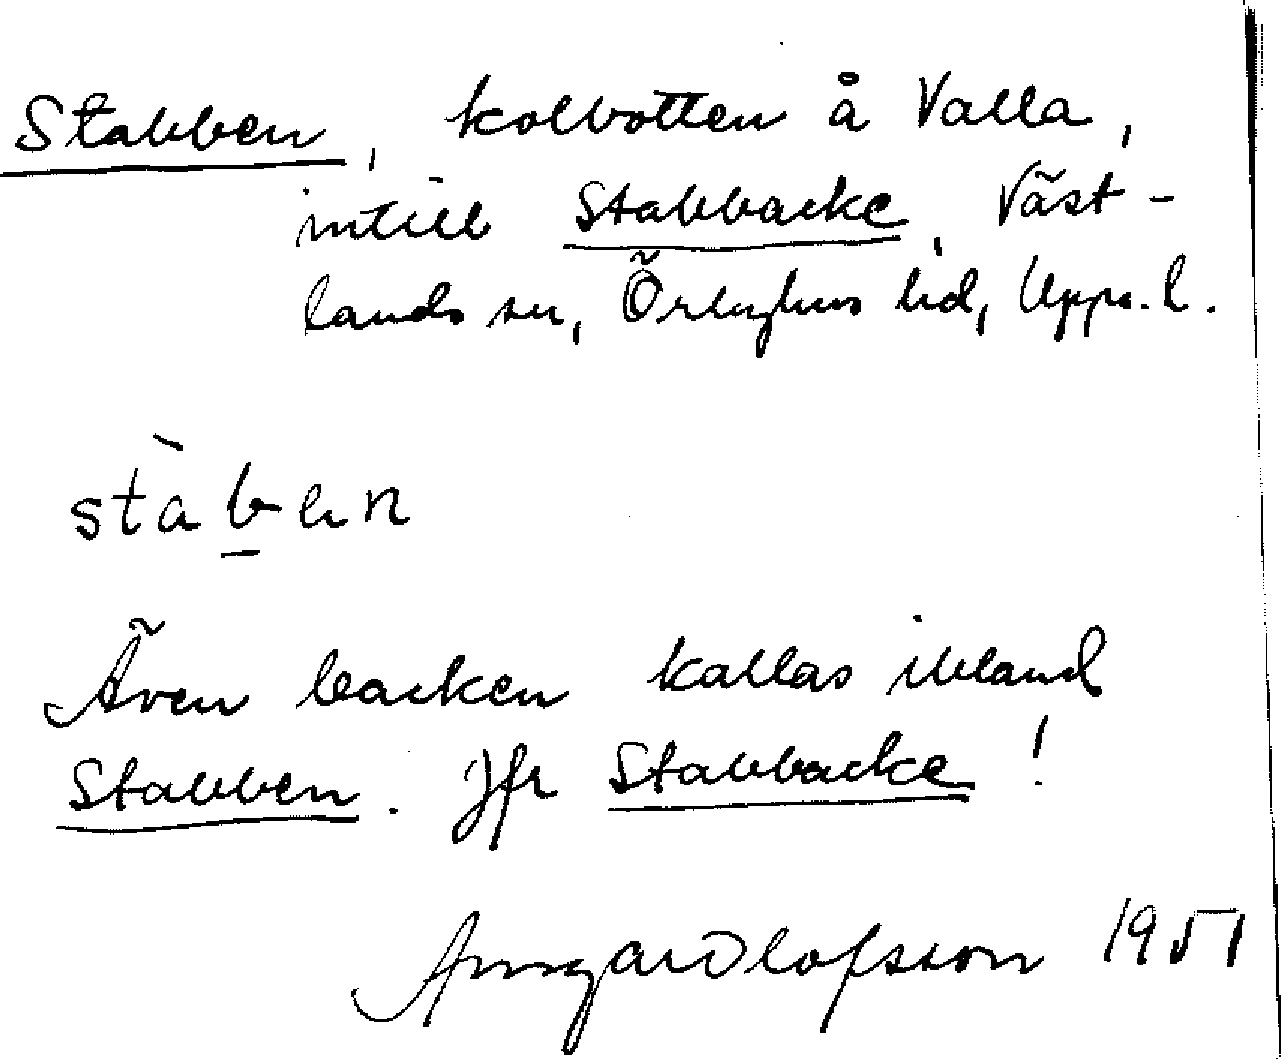 Stabben, kolbotten å Valla,
intill Stabbacke, Väst-
lands sn, Örbyhus hd, Upps. l.
stàb̲en
Även backen kallas ibland
Stabben. Jfr Stabbacke!
Olofsson 1951